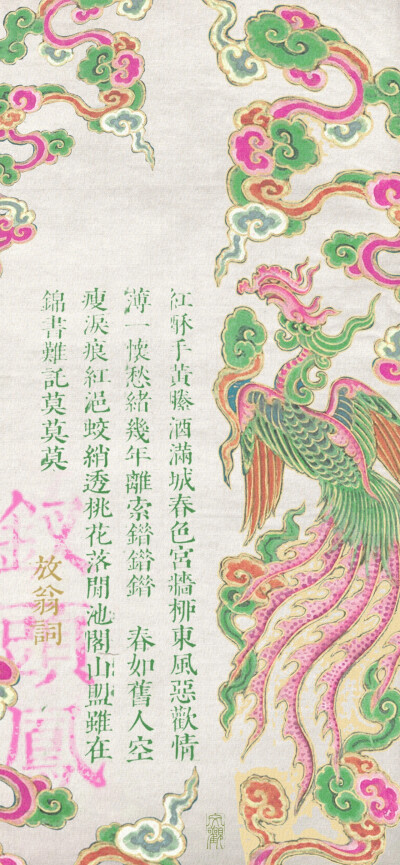 紅酥手黃縢酒滿城春色宮牆柳東風惡歡情
薄一懷愁緒幾年離索錯錯錯　春如舊人空
瘦淚痕紅浥蛟綃透桃花落閒池閣山盟雖在
錦書難託莫莫莫
放翁詞
釵頭鳳